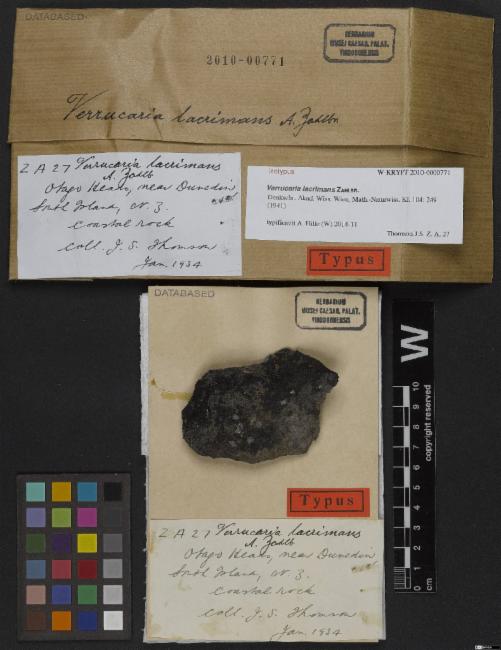 DATABASED
HERBARIUM
MUSEI CAESAR. PALAT.
VINDOBONENSIS
2010-00771
Verrucaria lacrimans A. Zahlbr
Z A 27 Verrucaria lacrimans
A. Zahlb
Otago Heads, near Dunedin
Island, N. Z.
coastal rock
coll. J. S. Thomson
Jan. 1934
W-KRYPT 2010-0000771
Verrucaria lacrimans ZAHLBR.
Denkschr. Akad. Wiss. Wien, Math.-Naturwiss. Kl. 104: 249
(1941)
typificavit A.
Thomson J.S. Z. A. 27
Typus
DATABASED
HERBARIUM
MUSEI CAESAR. PALAT.
VINDOBONENSIS
Typus
Z A 27 Verrucaria lacrimans
A. Zahlb
Otago Heads, near Dunedin
Island, N. Z.
coastal rock
coll. J. S. Thomson
Jan. 1934
W
0 1 2 3 4 5 6 7 8 9 10
cm
copyright reserved